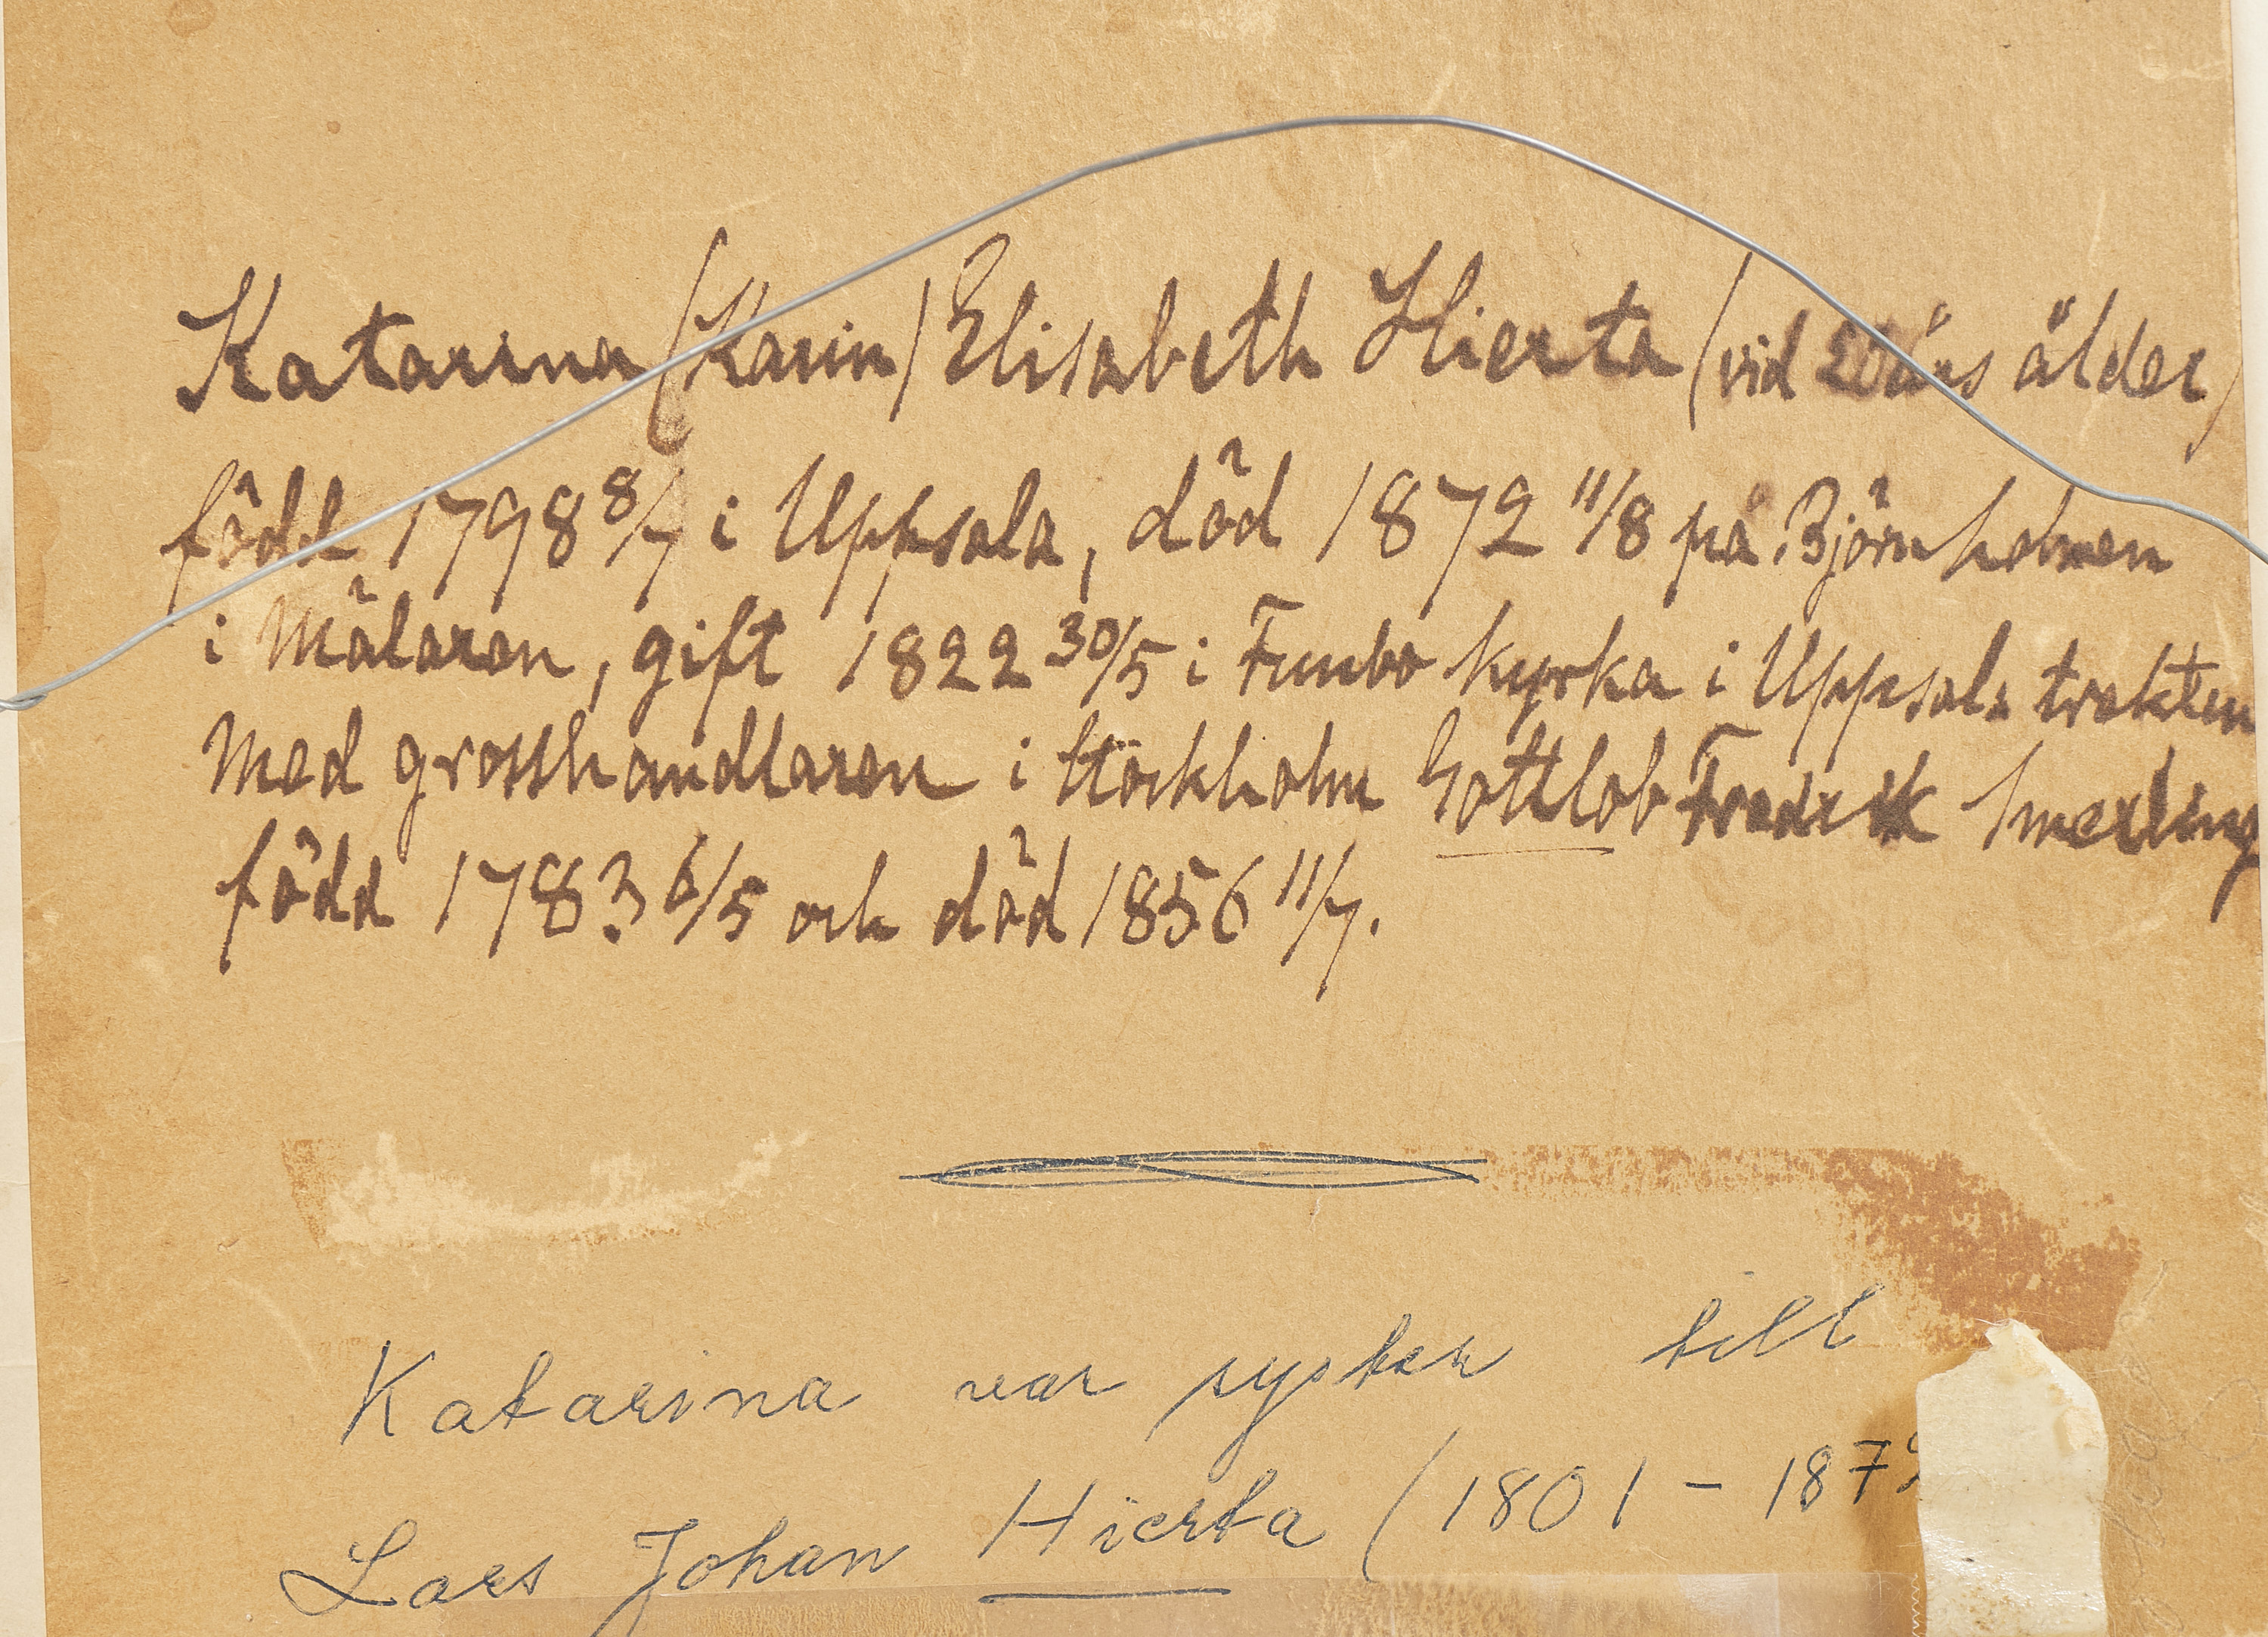 Katarina (Karin) Elisabeth Hierta (vid 20 års ålder)
född 1798 8/7 i Uppsala, död 1872 11/8 på Björnholmen
i Mälaren, gift 1822 30/5 i Funbo kyrka i Uppsala trakten
med grosshandlaren i Stockholm Gottlob Fredrik Smerling
född 1783 6/5 och död 1856 11/7.
Katarina var syster till
Lars Johan Hierta (1801 – 187